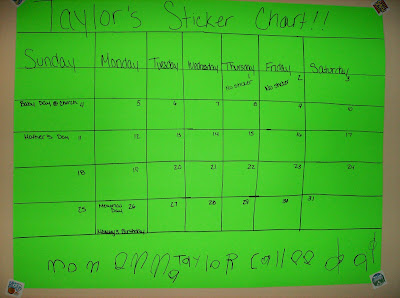 Taylor's Sticker Chart!!
Sunday Monday Tuesday Wednesday Thursday Friday Saturday
1 2 3
No sticker No sticker
Baby Day @ Church 4 5 6 7 8 9 10
Mother's Day 11 12 13 14 15 16 17
18 19 20 21 22 23 24
25 Memorial Day 26 27 28 29 30 31
Birthday
mom TAYLOR